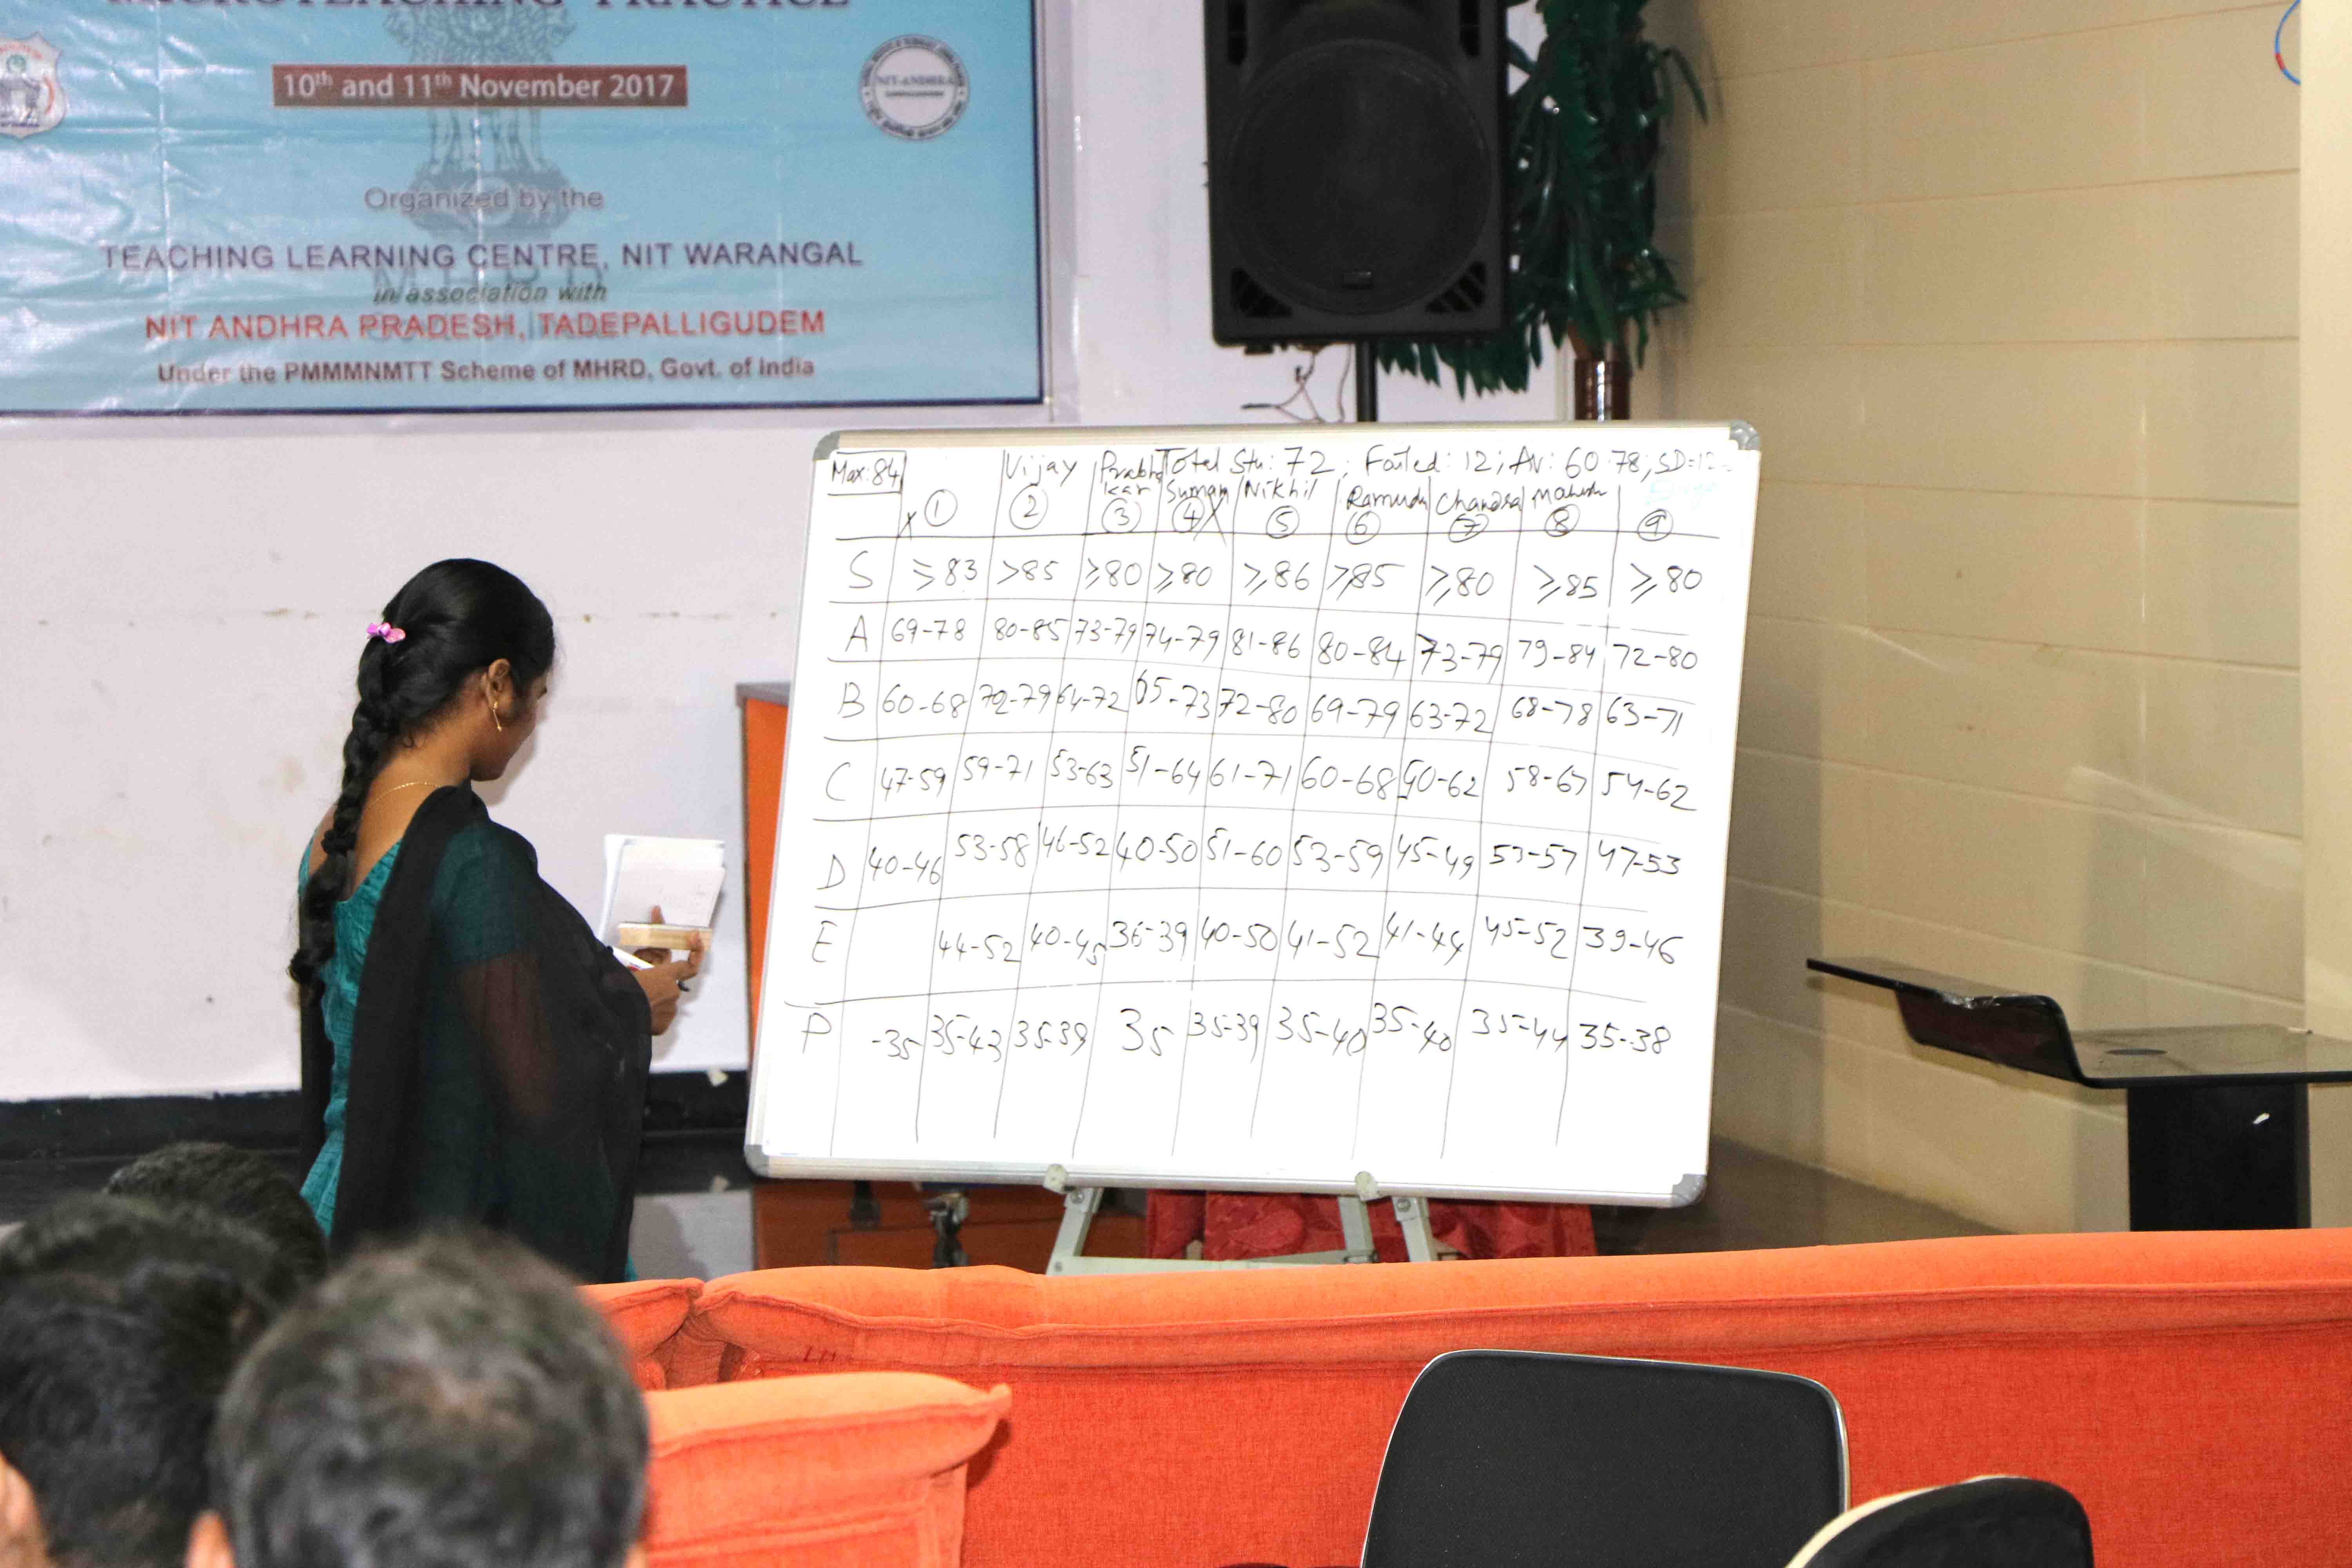 MICROTEACHING PRACTICE
10th and 11th November 2017
NIT-ANDHRA
Organized by the
TEACHING LEARNING CENTRE, NIT WARANGAL
in association with
NIT ANDHRA PRADESH, TADEPALLIGUDEM
Under the PMMMNMTT Scheme of MHRD, Govt. of India
Max:84 Total Stu: 72; Failed: 12; Av: 60.78; SD=12
Vijay Prabhakar Suman Nikhil Ramudu Chandra Mahesh
X ① ② ③ ④ X ⑤ ⑥ ⑦ ⑧ ⑨
S ≥83 >85 ≥80 ≥80 ≥86 ≥85 ≥80 ≥85 ≥80
A 69-78 80-85 73-79 74-79 81-86 80-84 73-79 79-84 72-80
B 60-68 72-79 64-72 65-73 72-80 69-79 63-72 68-78 63-71
C 47-59 59-71 53-63 51-64 61-71 60-68 50-62 58-67 54-62
D 40-46 53-58 46-52 40-50 51-60 53-59 45-49 53-57 47-53
E 44-52 40-45 36-39 40-50 41-52 41-44 45-52 39-46
P -35 35-43 35-39 35 35-39 35-40 35-40 35-44 35-38